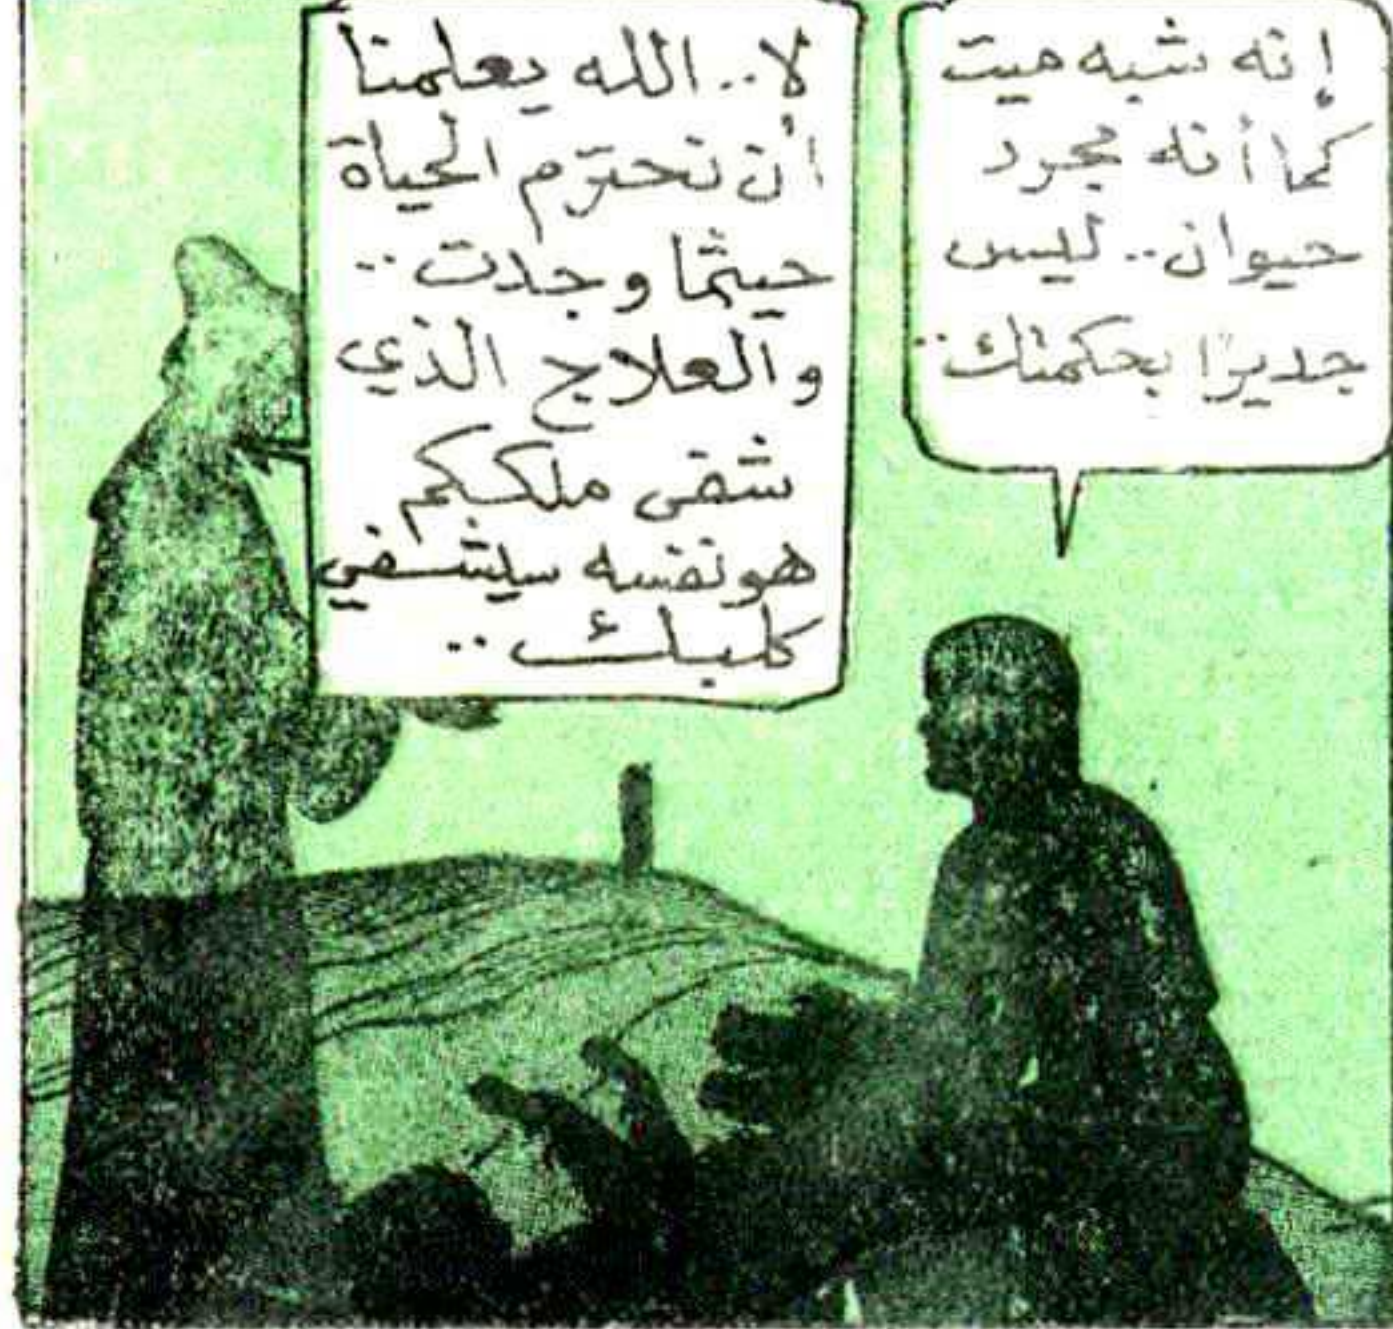 إنه شبه ميت
كما أنه مجرد
حيوان.. ليس
جديرًا بحكمتك..
لا.. الله يعلمنا
أن نحترم الحياة
حيثما وجدت..
والعلاج الذي
شفى ملككم
هو نفسه سيشفي
كلبك..